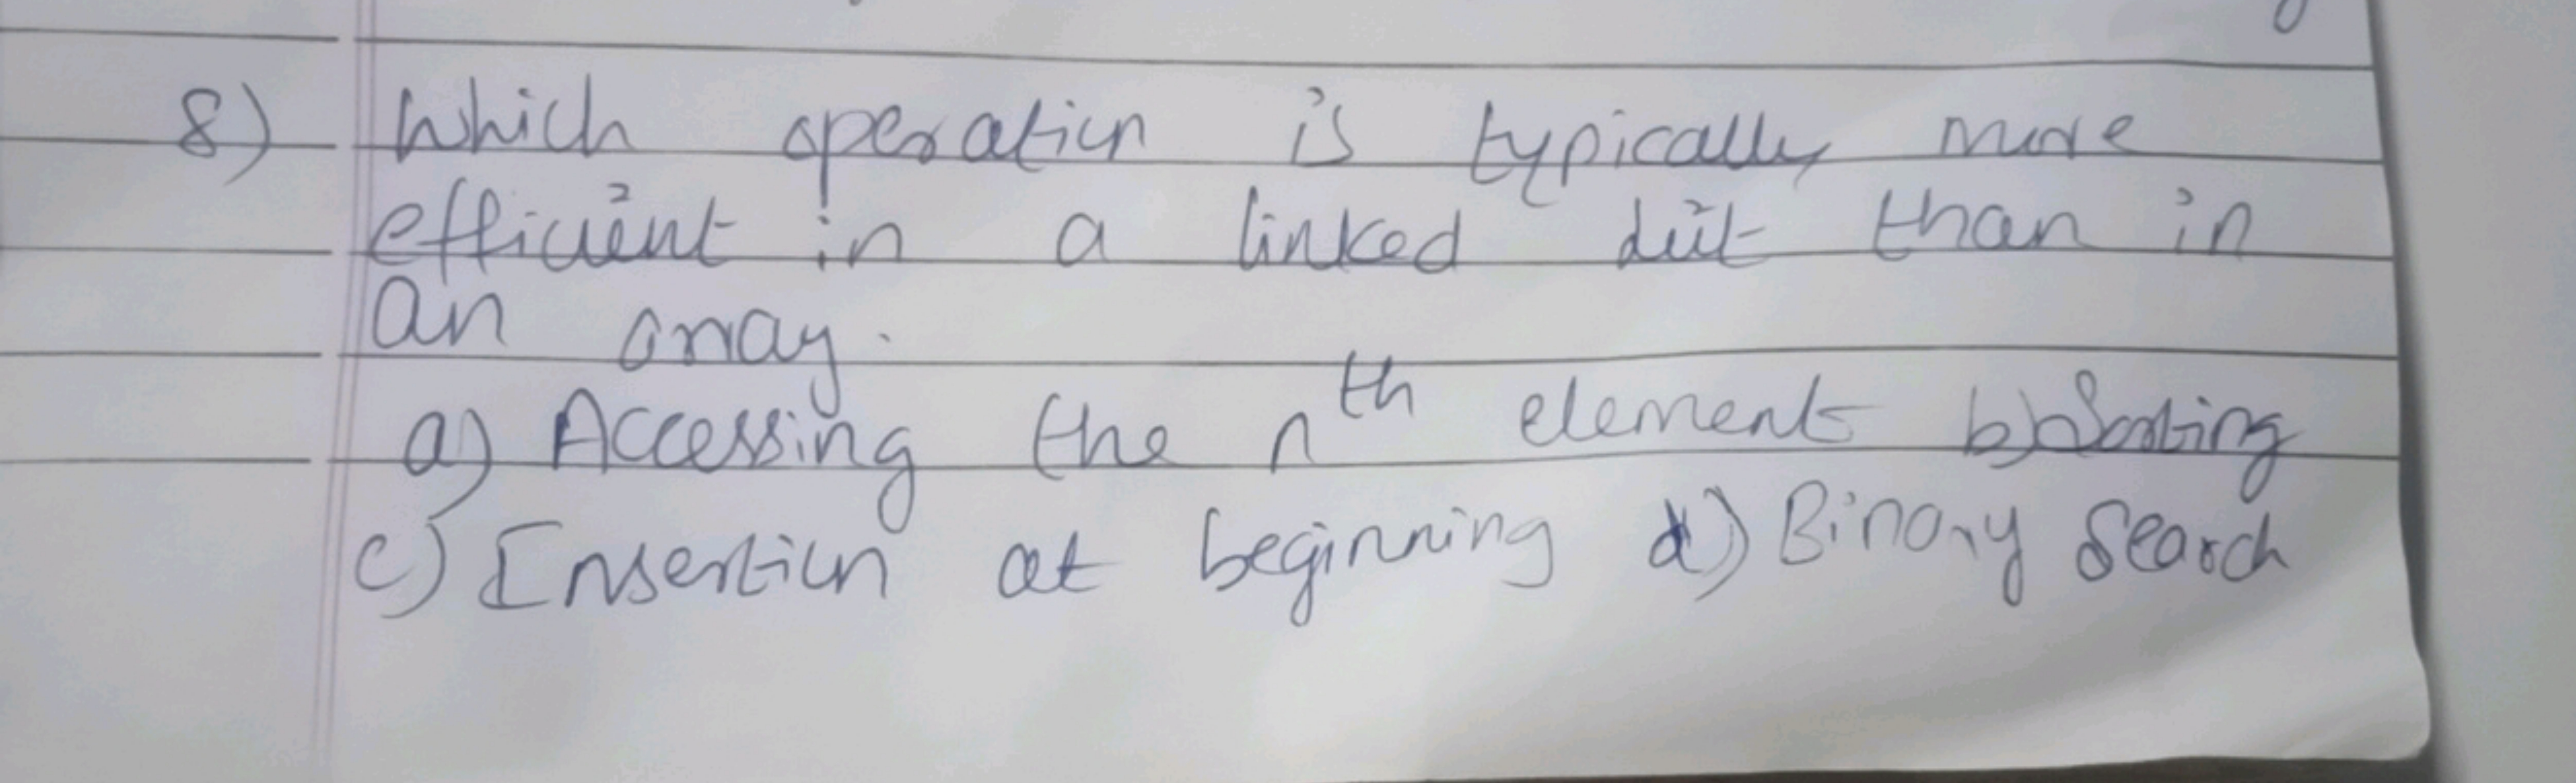 8) Which operation is typically more
efficient in a linked list than in
an array.
a) Accessing the nth element b) Sorting
c) Insertion at beginning d) Binary Search